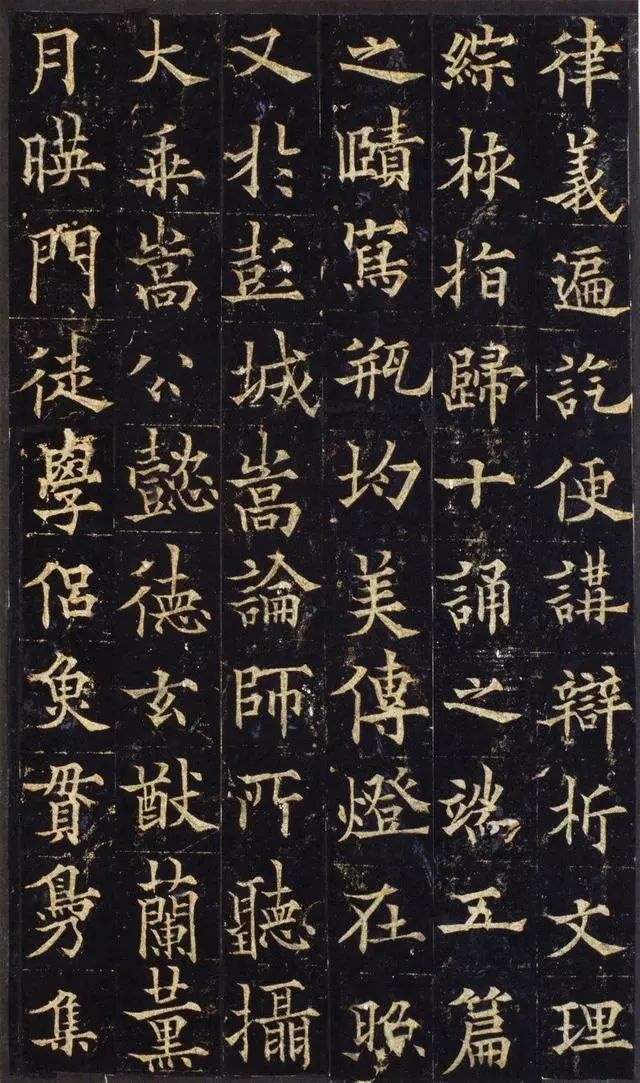 律義遍訖便講辯析文理
綜㧞指歸十誦之端五篇
之賾寫瓶均美傳燈在照
又於彭城嵩論師所聽攝
大乘嵩公懿德玄猷蘭薰
月暎門徒學侶魚貫鳧集